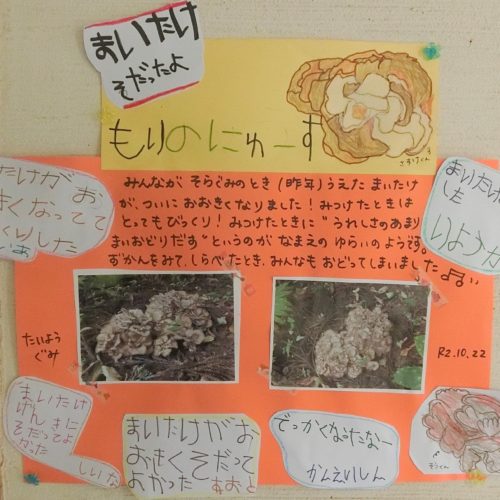 まいたけ
そだったよ
もりのにゅーす
みんなが そらぐみのとき(昨年)うえた まいたけ
が、ついに おおきくなりました!みつけたときは
とってもびっくり!みつけたときに"うれしさのあまり
まいおどりだす"というのが なまえの ゆらいのようです。
ずかんをみて、しらべたとき、みんなも おどってしまいました♪
たけが お
きくなってて
くりした
まいたけ
した
いような
たいよう
ぐみ
R2.10.22
まいたけ
げんきに
そだってよ
かった
しいな
まいたけがお
おきくそだって
よかった
でっかくなったなー
かんえいしん